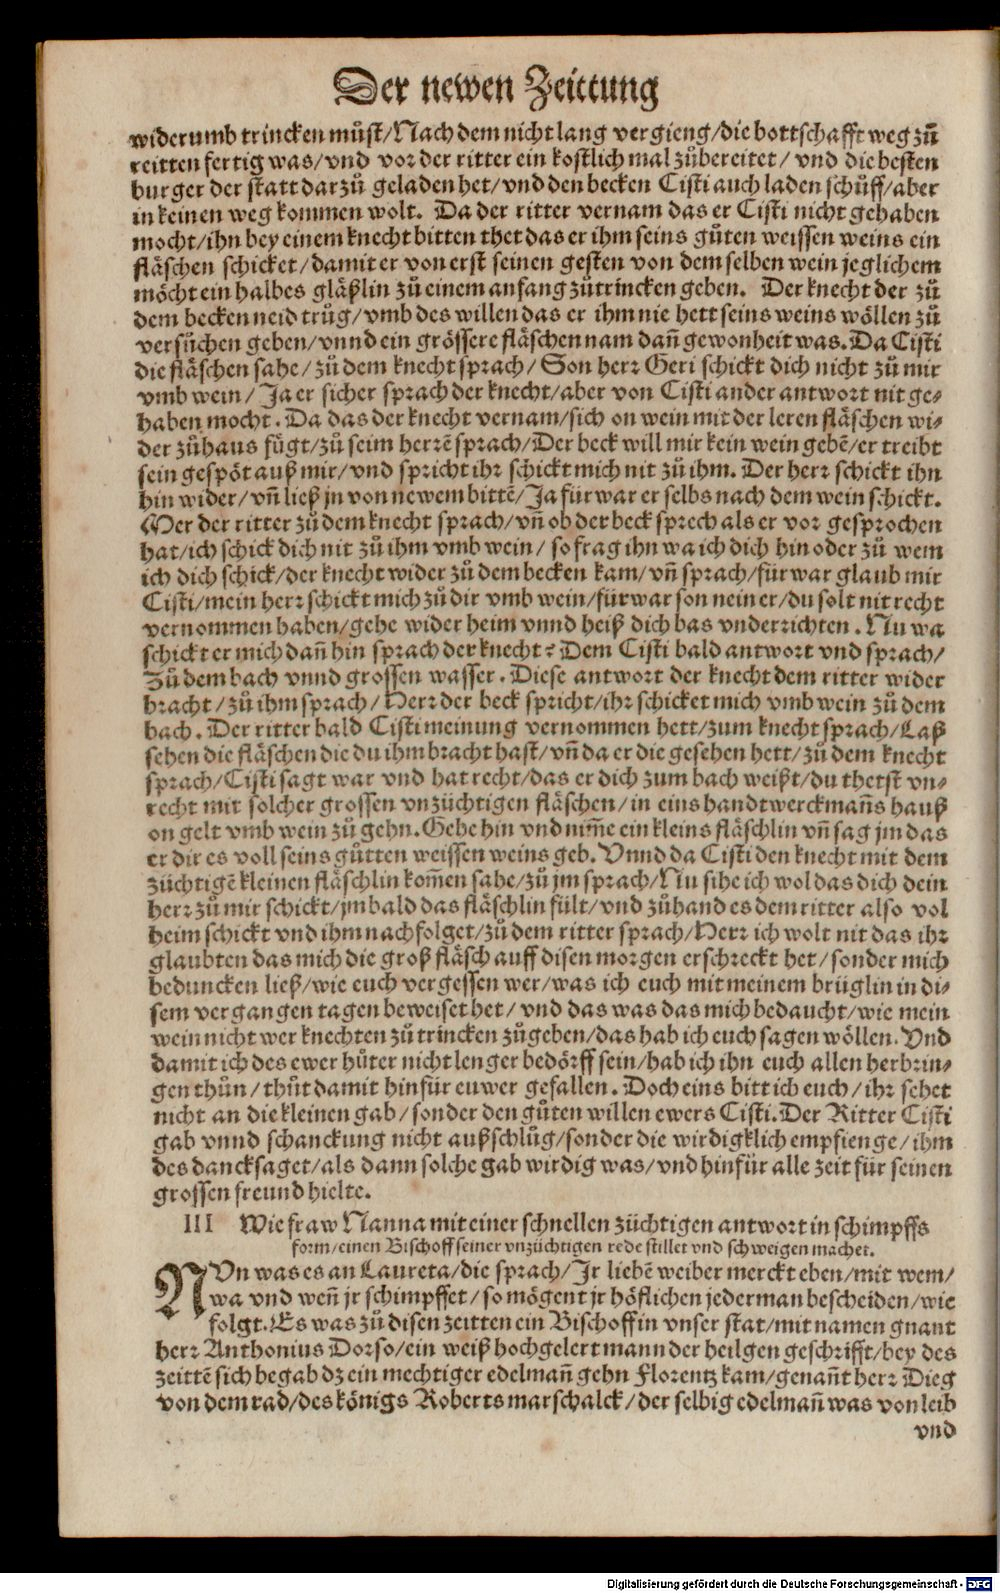 Der newen Zeittung
widerumb trincken můst/Nach dem nicht lang vergieng/die bottschafft weg zů
reitten fertig was/vnd vor der ritter ein kostlich mal zůbereitet/ vnd die besten
burger der statt darzů geladen het/vnd den becken Cisti auch laden schůff/aber
in keinen weg kommen wolt. Da der ritter vernam das er Cisti nicht gehaben
mocht/ihn bey einem knecht bitten thet das er ihm seins gůten weissen weins ein
fläschen schicket/damit er von erst seinen gesten von dem selben wein jeglichem
möcht ein halbes gläßlin zů einem anfang zůtrincken geben. Der knecht der zů
dem becken neid trůg/vmb des willen das er ihm nie hett seins weins wöllen zů
versůchen geben/vnnd ein grössere fläschen nam dañ gewonheit was. Da Cisti
die fläschen sahe/zů dem knecht sprach/Son herr Geri schickt dich nicht zů mir
vmb wein/Ja er sicher sprach der knecht/aber von Cisti ander antwort nit ge-
haben mocht. Da das der knecht vernam/sich on wein mit der leren fläschen wi-
der zů haus fůgt/zů seim herrē sprach/Der beck will mir kein wein gebē/er treibt
sein gespöt auß mir/vnd spricht ihr schickt mich nit zů ihm. Der herr schickt ihn
hin wider/vñ ließ jn von newem bittē/Ja fürwar er selbs nach dem wein schickt.
Mer der ritter zů dem knecht sprach/vñ ob der beck sprech als er vor gesprochen
hat/ich schick dich nit zů ihm vmb wein/so frag ihn wa ich dich hin oder zů wem
ich dich schick/der knecht wider zů dem becken kam/vñ sprach/fürwar glaub mir
Cisti/mein herr schickt mich zů dir vmb wein/fürwar son nein er/du solt nit recht
vernommen haben/gehe wider heim vnnd heiß dich bas vnderrichten. Nu wa
schickt er mich dañ hin sprach der knecht? Dem Cisti bald antwort vnd sprach/
Zů dem bach vnnd grossen wasser. Diese antwort der knecht dem ritter wider
bracht/zů ihm sprach/Herr der beck spricht/ihr schicket mich vmb wein zů dem
bach. Der ritter bald Cisti meinung vernommen hett/zum knecht sprach/Laß
sehen die fläschen die du ihm bracht hast/vñ da er die gesehen hett/zů dem knecht
sprach/Cisti sagt war vnd hat recht/das er dich zum bach weißt/du thetst vn-
recht mit solcher grossen vnzüchtigen fläschen/in eins handtwerckmañs hauß
on gelt vmb wein zů gehn. Gehe hin vnd nim̃e ein kleins fläschlin vñ sag jm das
er dir es voll seins gůtten weissen weins geb. Vnnd da Cisti den knecht mit dem
züchtigē kleinen fläschlin kom̃en sahe/zů jm sprach/Nu sihe ich wol das dich dein
herr zů mir schickt/jm bald das fläschlin fült/vnd zůhand es dem ritter also vol
heim schickt vnd ihm nachfolget/zů dem ritter sprach/Herr ich wolt nit das ihr
glaubten das mich die groß fläsch auff disen morgen erschreckt het/sonder mich
beduncken ließ/wie euch vergessen wer/was ich euch mit meinem brüglin in di-
sem vergangen tagen beweiset het/vnd das was das mich bedaucht/wie mein
wein nicht wer knechten zů trincken zůgeben/das hab ich euch sagen wöllen. Vnd
damit ich des ewer hůter nicht lenger bedörff sein/hab ich ihn euch allen herbrin-
gen thůn/thůt damit hinfür euwer gefallen. Doch eins bitt ich euch/ihr sehet
nicht an die kleinen gab/sonder den gůten willen ewers Cisti. Der Ritter Cisti
gab vnnd schanckung nicht außschlůg/sonder die wirdigklich empfienge/ihm
des dancksaget/als dann solche gab wirdig was/vnd hinfür alle zeit für seinen
grossen freund hielte.
III Wie fraw Nanna mit einer schnellen züchtigen antwort in schimpffs
form/einen Bischoff seiner vnzüchtigen rede stillet vnd schweigen machet.
NVn was es an Laureta/die sprach/Jr liebē weiber merckt eben/mit wem/
wa vnd weñ jr schimpffet/so mögent jr höflichen jederman bescheiden/wie
folgt. Es was zů disen zeitten ein Bischoff in vnser stat/mit namen gnant
herr Anthonius Dorso/ein weiß hochgelert mann der heilgen geschrifft/bey des
zeittē sich begab dz ein mechtiger edelmañ gehn Florentz kam/genañt herr Dieg
von dem rad/des königs Roberts marschalck/der selbig edelmañ was von leib
vnd
Digitalisierung gefördert durch die Deutsche Forschungsgemeinschaft - DFG